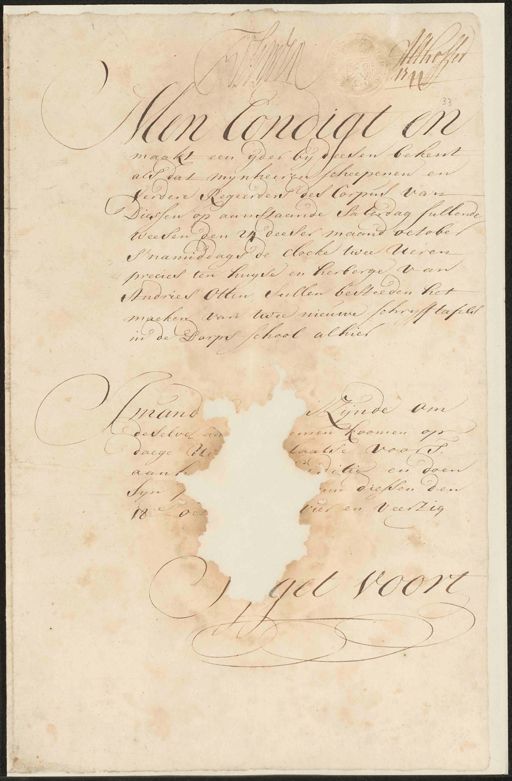 33
Men Condigt en
maakt een ijder bij deesen bekent
als dat mijnheeren scheepenen en
verdere Regeerders des Corpus van
Diessen op aanstaande Saterdag sullende
weesen den 24 deeser maand octobe
s'namiddags de clocke twee Ueren
precies ten huijse en herberge van
Andries Otten, sullen besteeden het
maeken van twee nieuwe schrijfftafels
in de Dorps school alhier
Imand Zijnde om
deselve aan neemen koomen op
daege Ure plaatse voors.
aanh ditie en doen
Syn diessen den
18e vier en veertig
Segget voort